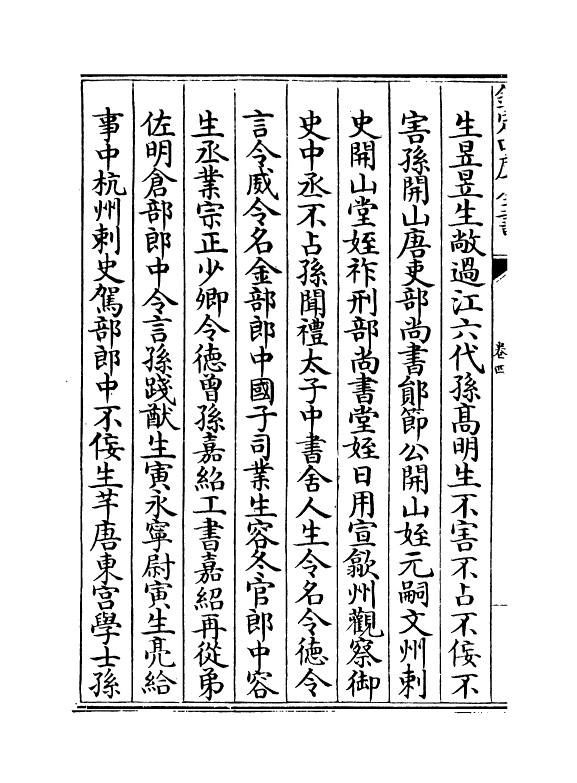 生昱昱生敞過江六代孫髙明生不害不占不佞不
害孫開山唐吏部尚書鄖節公開山姪元嗣文州刺
史開山堂姪祚刑部尚書堂姪日用宣歙州觀察御
史中丞不占孫聞禮太子中書舍人生令名令徳令
言令威令名金部郎中國子司業生容冬官郎中容
生丞業宗正少卿令徳曾孫嘉紹工書嘉紹再從弟
佐明倉部郎中令言孫踐猷生寅永寧尉寅生亮給
事中杭州刺史駕部郎中不佞生芊唐東宫學士孫
卷四